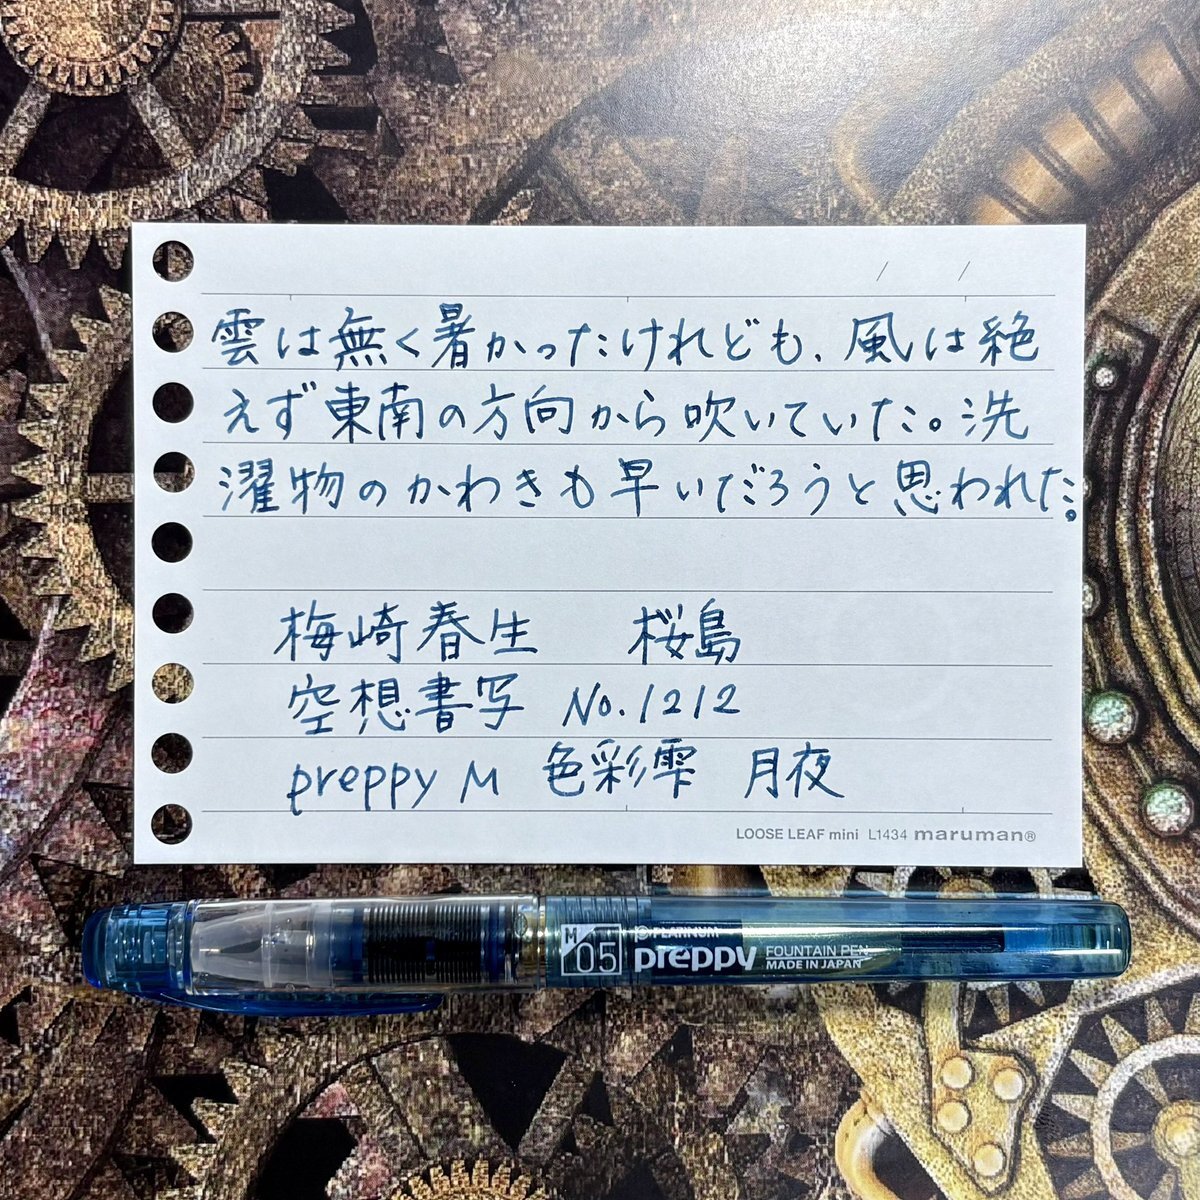 / /
雲は無く暑かったけれども、風は絶
えず東南の方向から吹いていた。洗
濯物のかわきも早いだろうと思われた。
梅崎春生 桜島
空想書写 No.1212
preppy M 色彩雫 月夜
LOOSE LEAF mini L1434 maruman®
M 05 PLATINUM preppy FOUNTAIN PEN MADE IN JAPAN